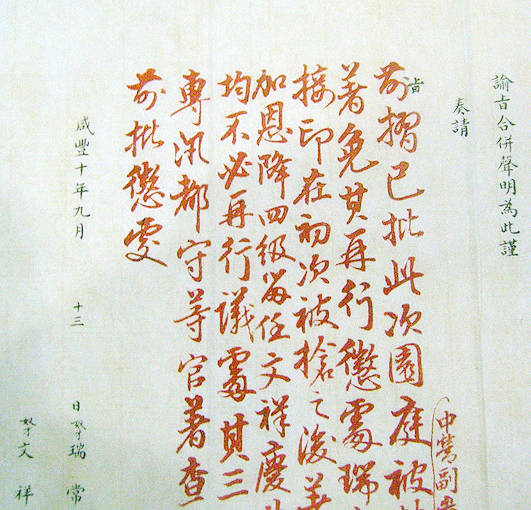 諭旨合併聲明為此謹
奏請
旨
中營副
前摺已批此次園庭被
著免其再行懲處瑞
接印在初次被搶之後
加恩降四級留任文祥慶
均不必再行議處其三
專汛都守等官著查
前批懲處
咸豐十年九月 十三 日奴才瑞常
奴才文祥